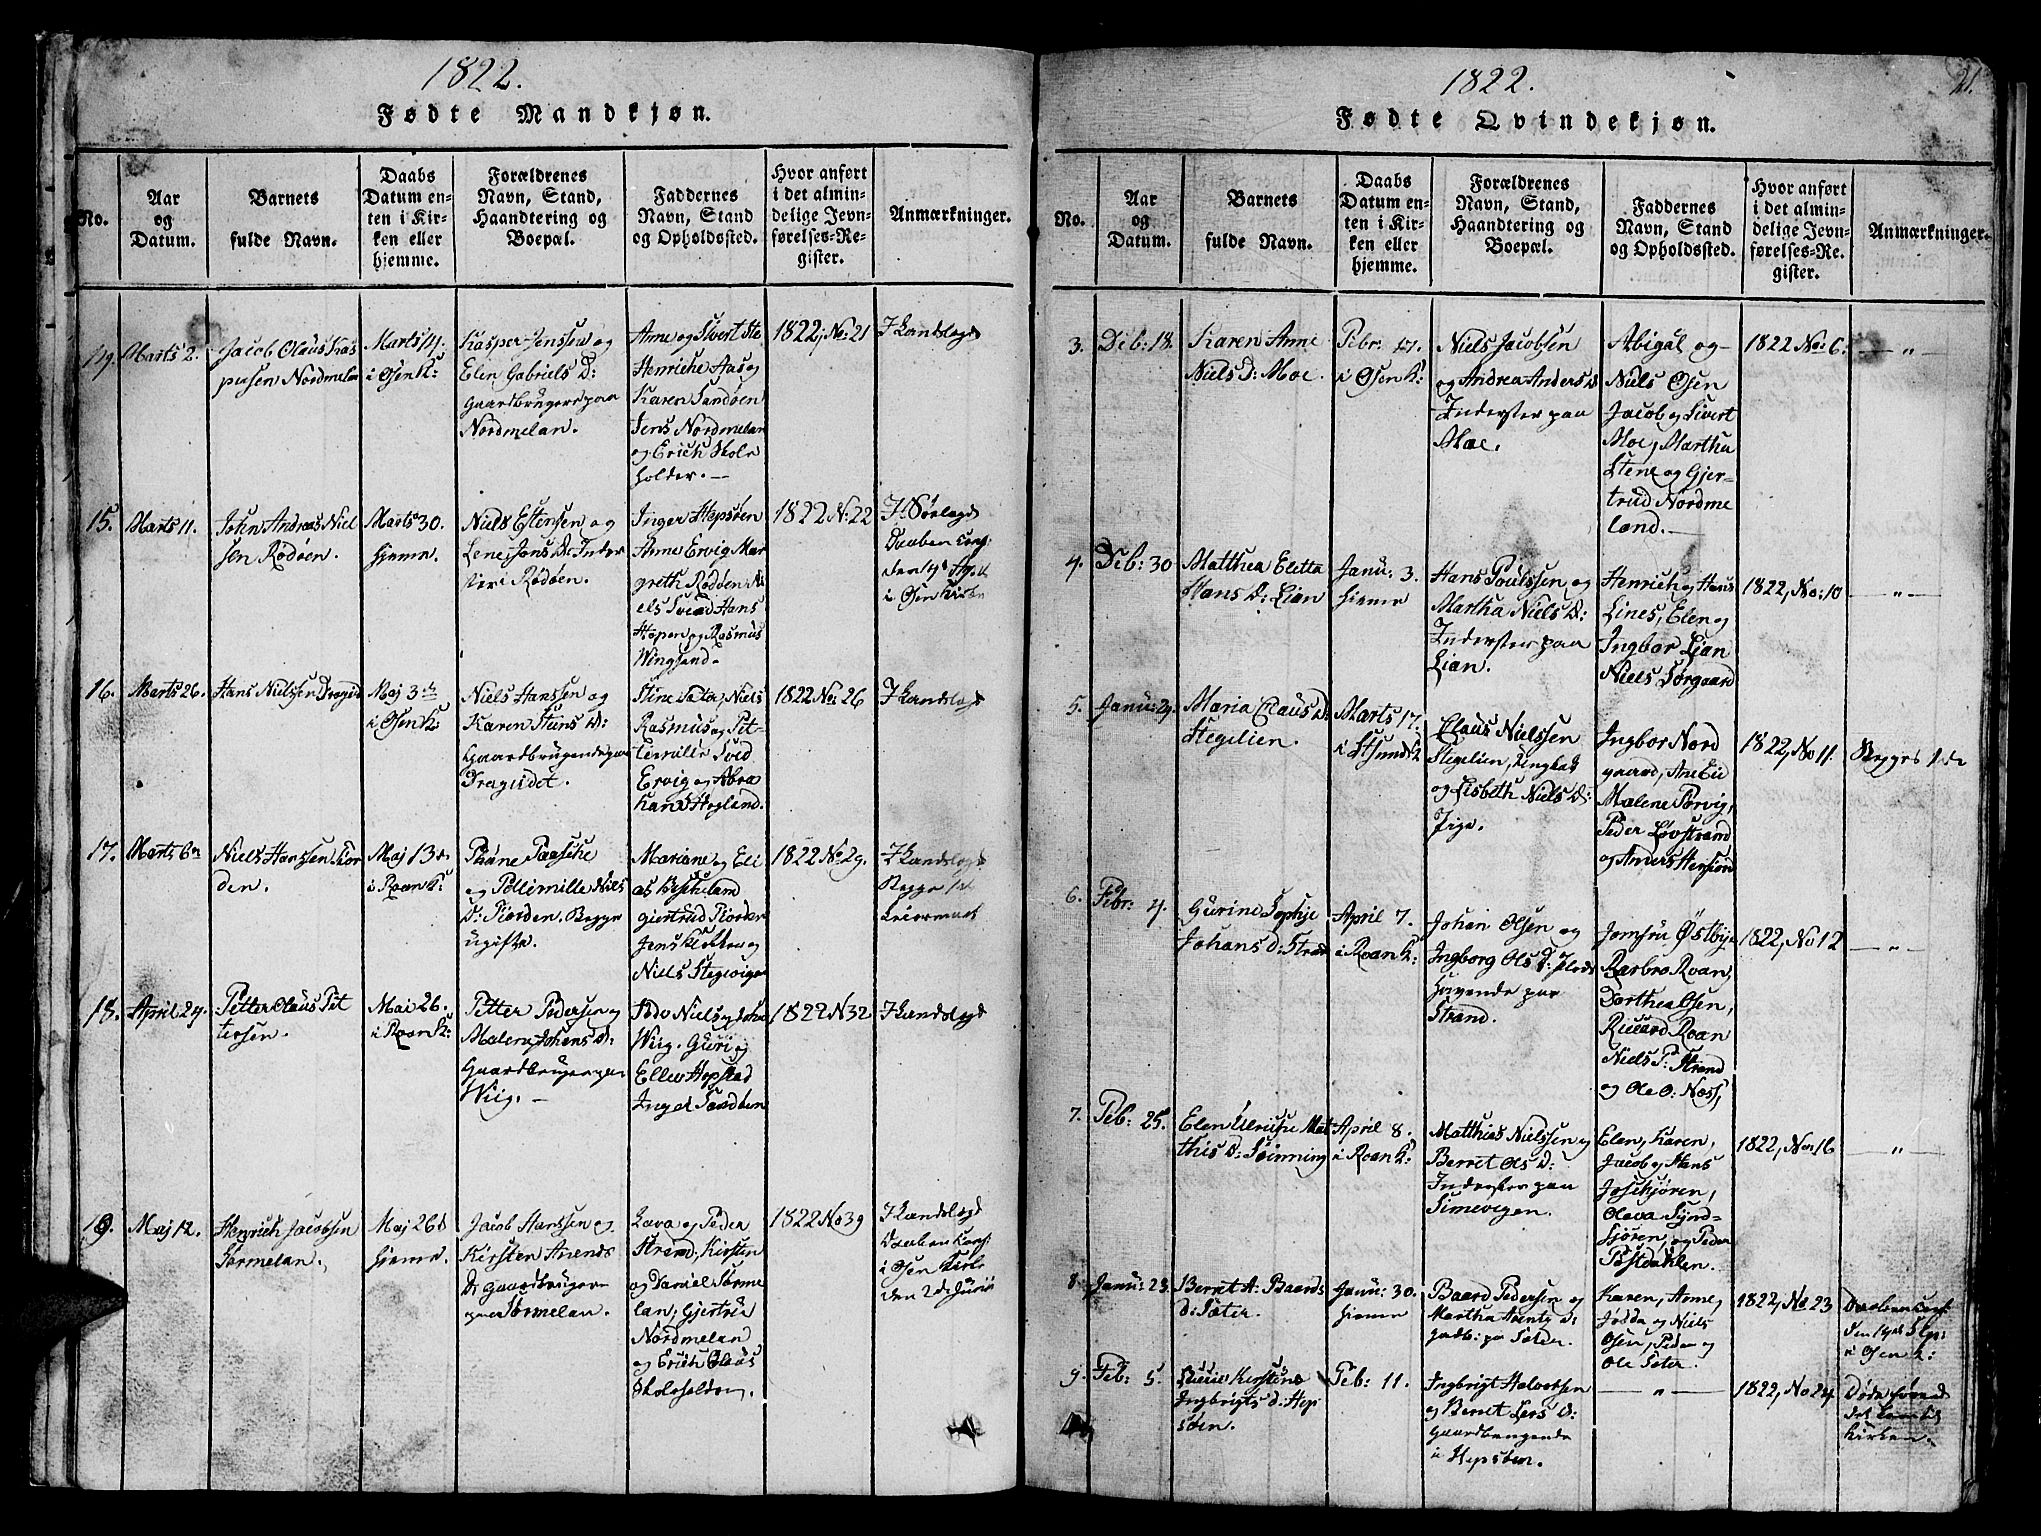 1822.
Fødte Mandkjøn.
No.
Aar
og
Datum.
Barnets
fulde Navn.
Daabs
Datum en-
ten i Kir-
ken eller
hjemme.
Forældrenes
Navn, Stand,
Haandtering og
Boepæl.
Faddernes
Navn, Stand
og Opholdssted.
Hvor anført
i det almin-
delige Jevn-
førelses-Re-
gister.
Anmærkninger.
Marts 2.
Jacob Olaus Kas
persen Nordmelan
Marts 14.
i Osen K:
Kasper Jenssen og
Elen Gabriels D:
Gaardbrugere paa
Nordmelan.
Anne og Sivert Ste
Henriche Aas og
Karen Sandøen
Jens Nordmelan
og Erich Skole
holder.
1822, No: 21
15.
Marts 11.
John Andreas Niel
sen Rødøen.
Marts 30.
hjeme.
Niels Estensen og
Lene Jons D: Inder
ster i Rødøen.
Inger Hepsøen
Anne Ervig Mar
greth Rødøen Ni
els Sved Hans
Hopen og Rasmus
Wingsand.
1822 N: 22
i Osen Kirke
16.
Marts 26.
Hans Nielssen Drageid
Maj 3de
i Osen K:
Niels Hanssen og
Karen Stens D:
Gaardbrugende paa
Drageidet.
Stine Sæter, Niels
Rasmus og Pet-
ternille Sved
Ervig og Abra
ham Høgland.
1822 No: 26
17.
Marts 6te
Niels Hanssen Fior
den.
Maj 13de
i Roan K:
Paasche
og Nils
D: Fiorden. Begge
ugifte.
Mariane og Eli
as Beskeland
giertrud Fiorden
Jens Kløkken og
Niels Stegvigen
1822 No 29.
Begge 1ste
Leiermaal
18.
April 24.
Petter Olaus Pet
tersen.
Mai 26.
i Roan K:
Petter Pedersen og
Malene Johans D:
Gaardbruger paa
Wiig. —
Niels og John
Wiig. Guri og
Ellen Hopstad
1822 N 32
19.
Maj 12.
Henrich Jacobsen
Sørmelan.
Maj 26de
hjeme.
Jacob Hanssen og
Kirsten Arends
D: gaardbrugere
paa Sørmelan.
Lava og Peder
Strand, Kirsten
og Daniel Sørme
lan; Gjertrud
Nordmelan
og Erich Olaus
Skoleholder.
1822 No 39
i Osen Kirke
den 2de Juni
1822.
21.
Fødte Qvindekjøn.
No.
Aar
og
Datum.
Barnets
fulde Navn.
Daabs
Datum en-
ten i Kir-
ken eller
hjemme.
Forældrenes
Navn, Stand,
Haandtering og
Boepæl.
Faddernes
Navn, Stand
og Opholdssted.
Hvor anført
i det almin-
delige Jevn-
førelses-Re-
gister.
Anmærkninger.
3.
Deb: 18.
Karen Anne
Niels D: Moe.
Febr: 17.
i Osen K:
Niels Jacobsen
og Andrea Anders D
Inderster paa
Moe.
Abigal og
Niels Osen
Jacob og Sivert
Moe, Martha
Stene og Gjer-
trud Nordme
land. —
1822 No: 6.
— " —
4.
Deb: 30
Matthea Eletta
Hans D: Lian
Janu: 3.
hjeme
Hans Poulssen og
Martha Niels D:
Inderster paa
Lian.
Henrich og Hans
Lines, Elen og
Ingbor Lian
Niels Sørgaard
1822, No: 10
— " —
5.
Maria Claus D:
Stegelien.
Marts 17.
Claus Nielssen
Stegelien, Ungkal
og Lisbeth Niels D:
Pige.
Ingbor Nord
gaard, Ane
Malene Torvig,
Peder Løvstrand
og Anders
1822, No 11.
Begges 1ste
6.
Febr: 4.
Gurine Sophie
Johans D: Strand
April 7.
i Roan K:
Johan Olsen og
Ingborg Ols D:
havende paa
Strand.
Jomfru Østbye
Barbro Roan,
Dorthea Olsen,
Roan
Niels P: Strand
og Ole O: Næss,
1822, No 12
— " —
7.
Feb: 25.
Elen Mat
this D: Svinning
April 8.
i Roan K:
Matthias Nielssen og
Berret Ols D:
Inderster paa
Simevigen.
Elen, Karen,
Jacob og Hans
Joschjøren,
Oleva Synd-
sjøren, og Peder
Postdahlen.
1822, No: 16
— " —
8.
Janu: 23.
Berret A: Baards
d: Sæter.
Janu: 30.
hjeme
Baard Pedersen og
Martha
Karen, Anne,
Jødda og Niels
Osen, Peder og
Ole Seter.
1822, No. 23
i Osen K:
9.
Feb: 5.
Ingbrigts d: Hep
søen.
Feb: 11.
Ingbrigt Halvorsen
og Berret Lars D:
Gaardbrugende
i Hepsøen.
— " —
1822, No 24.
Døde førend
det kom til
kirken.